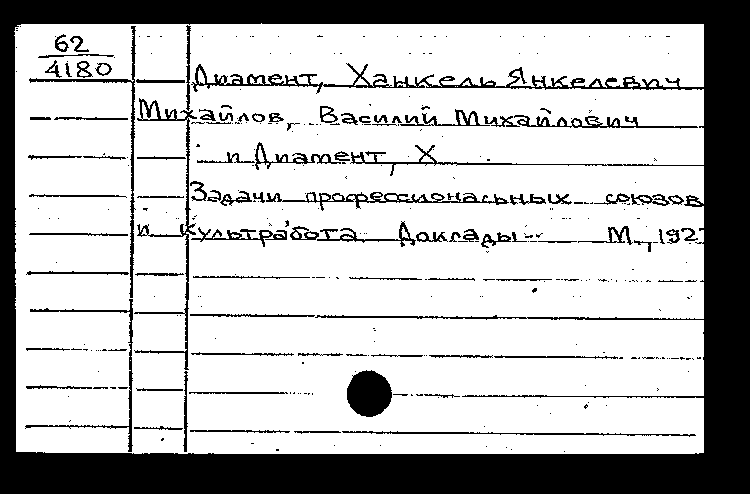 62
4180
Диамент, Ханкель Янкелевич
Михайлов, Василий Михайлович
и Диамент, Х
Задачи профессиональных союзов
и культработа. Доклады... М., 192